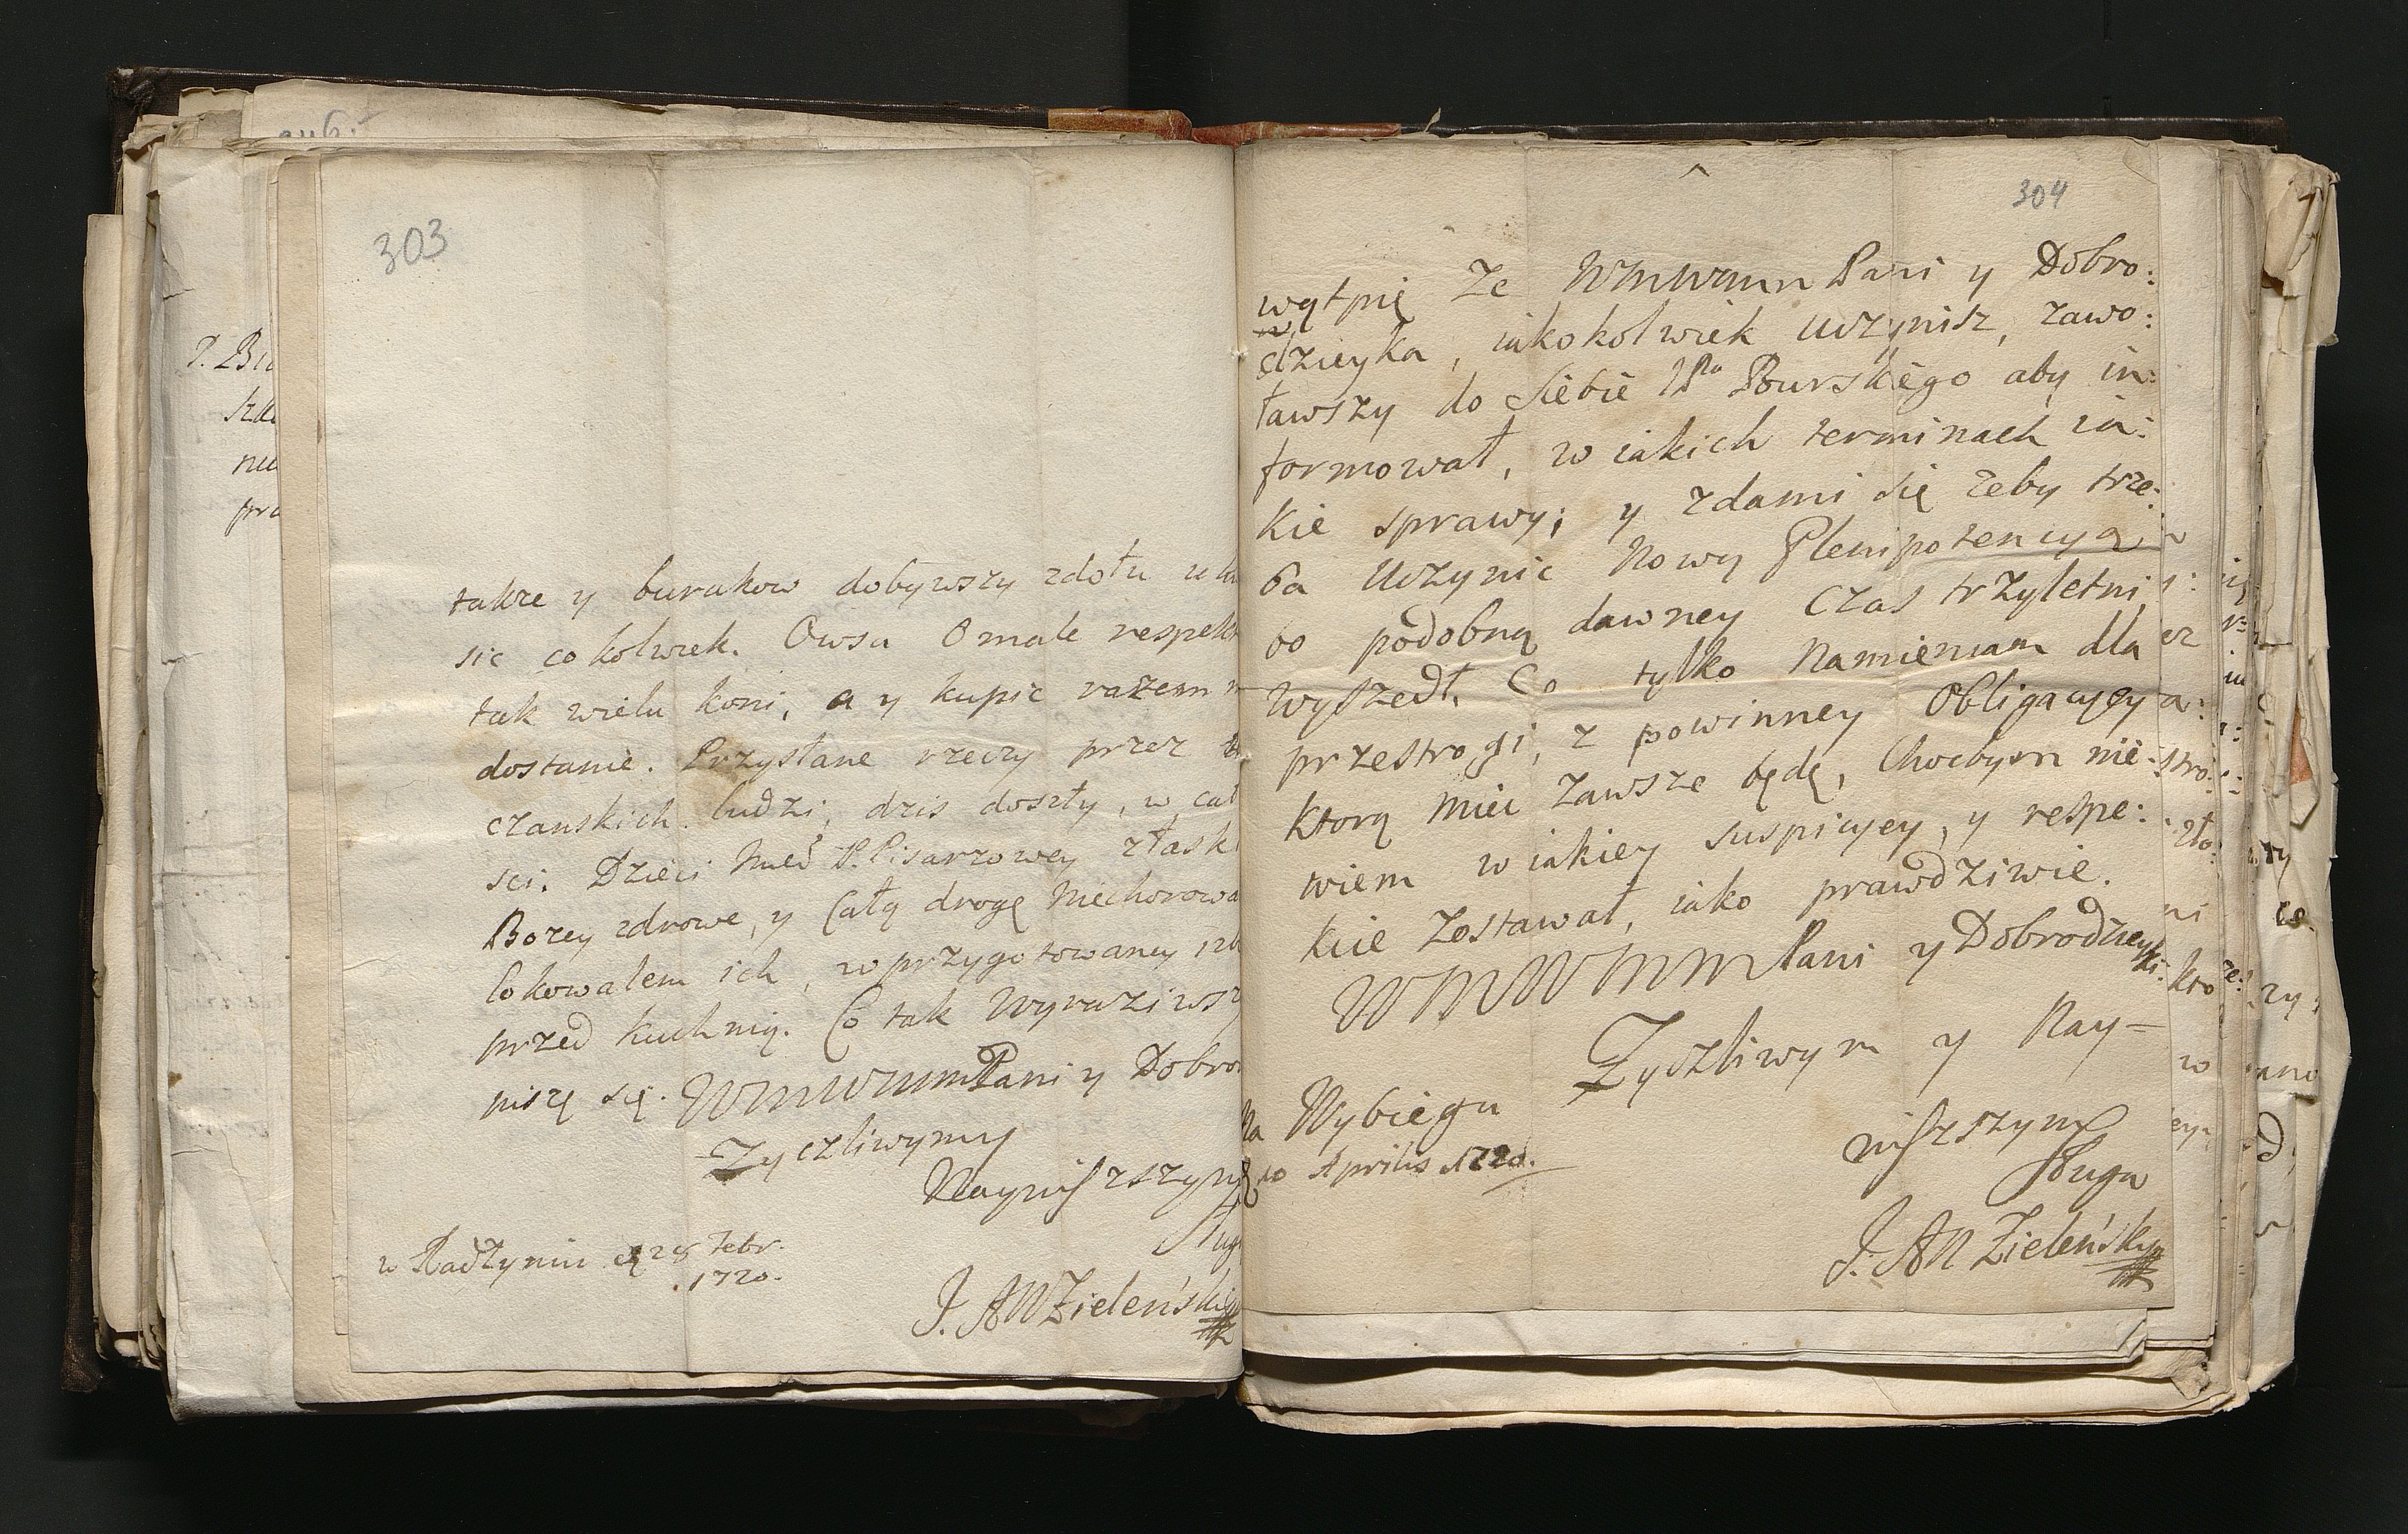 303
takze y burakow dobywszy zdołu
sie cokolwiek. Owsa O male respekt
tak wielu koni, a y kupic razem
dostanie. Przysłane rzeczy przez
czanskich ludzi, dzis doszły, w cał
sci. Dzieci P. Pisarzowey złask
Bozey zdrowe, y Całą drogę niechorowa
lokowalem ich, w przygotowaney izb
przed kuchnią. Co tak Wyraziwsz
piszę się. WMWMMPani y Dobro
Zyczliwym y
Nayniszszym
Sług
w Radzyniu d 28 Febr.
1720.
J. AN Zieleński
304
wątpię Ze WMWMM Pani y Dobro:
dzieyka, iakokolwiek uczynisz, zawo:
ławszy do Siebie Pourskiego aby in:
formował, w iakich terminach ia:
kie sprawy; y zdami się zeby trze:
ba Uczynic Nową Plenipotencyą
bo podobną dawney Czas trzyletni
wyszedł. Co tylko Namieniam dla
przestrogi, z powinney Obligacyey
ktorą Miec zawsze będę, Chocbym nie:
wiem w iakiey suspicyey, y respe:
kcie Zostawał, iako prawdziwie.
WMWMMPani y Dobrodzieyki
Zyczliwym y Nay=
niszszym
Sługa
Na Wybiegu
10 Aprilis 1720.
J. AN Zieleński